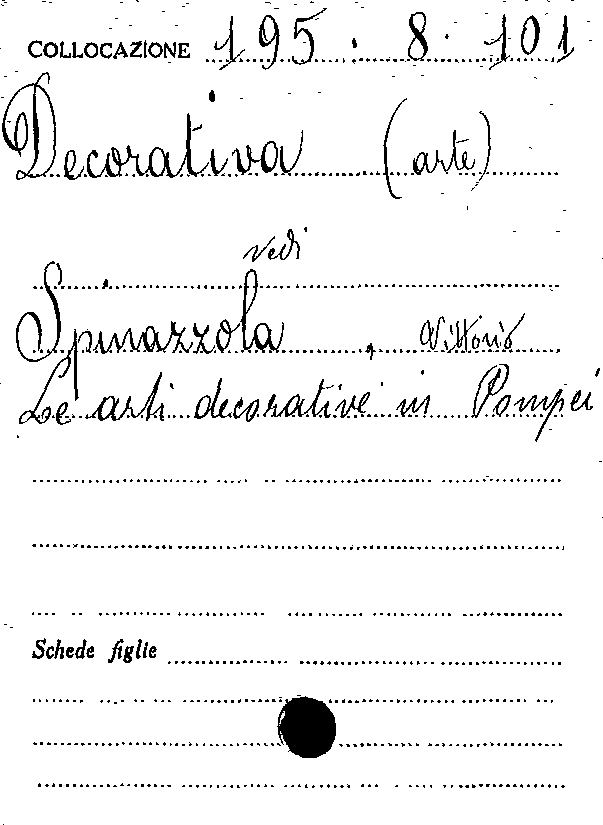 COLLOCAZIONE 195.8.101
Decorativa (arte)
vedi
Spinazzola, Vittorio
Le arti decorative in Pompei
Schede figlie